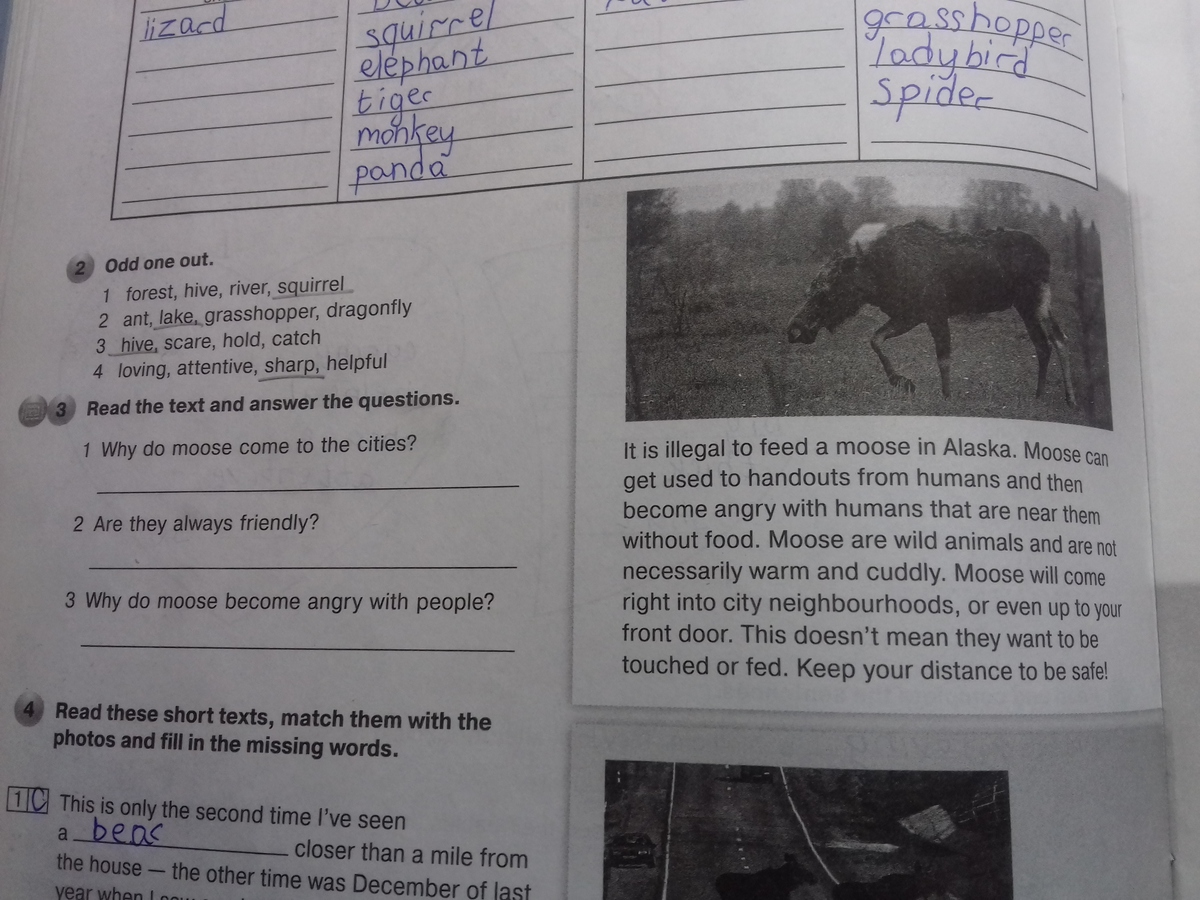 lizard
squirrel
elephant
tiger
monkey
panda
grasshopper
ladybird
Spider
2 Odd one out.
1 forest, hive, river, squirrel
2 ant, lake, grasshopper, dragonfly
3 hive, scare, hold, catch
4 loving, attentive, sharp, helpful
3 Read the text and answer the questions.
1 Why do moose come to the cities?
2 Are they always friendly?
3 Why do moose become angry with people?
It is illegal to feed a moose in Alaska. Moose can
get used to handouts from humans and then
become angry with humans that are near them
without food. Moose are wild animals and are not
necessarily warm and cuddly. Moose will come
right into city neighbourhoods, or even up to your
front door. This doesn't mean they want to be
touched or fed. Keep your distance to be safe!
4 Read these short texts, match them with the
photos and fill in the missing words.
1 C This is only the second time I've seen
a bear closer than a mile from
the house — the other time was December of last
year when I